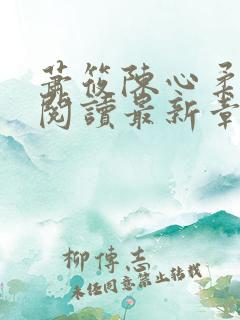 蕭筱陳心柔
閱讀最新章
柳傅志
未經同意禁止轉載